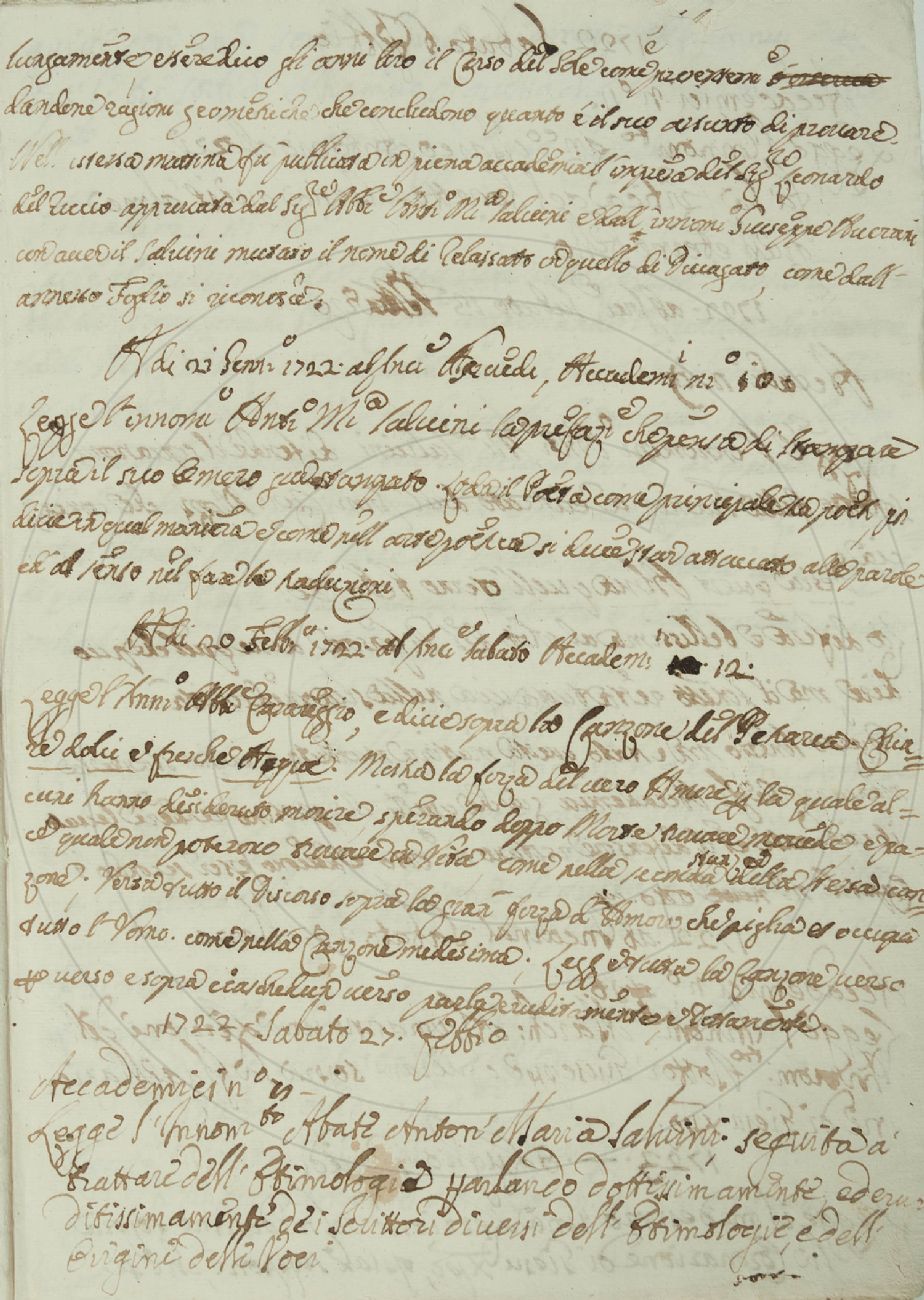 lungamente e
gli anni loro il Corso del Sole come
dandone ragioni geometriche che concludono quanto é il suo assunto di provare.
Nell' istessa mattina fu publicata in piena accademia l'impresa del Sig.re Leonardo
del Riccio approvata dal Sig.re Abb.e Ant.o M.a Salvini e dall' innom.o Giuseppe
con aver il Salvini mutato il nome di in quello di come dall'-
annesso Foglio si riconosce.
A di 21 Genn.o 1722. al Inc.e Accademi.i n.o 10
Legge l'innom.o Ant.o M.a Salvini la prefaz.e che pensa di Stampare
sopra il suo Omero gia stampato. Loda il Poeta come principale
dice in qual maniera e come nell' arte poetica si deve star attaccato alle parole
ed al senso nel fare le traduzioni
A di 20 Febb.o 1722. al Inc.e Sabato Accadem: 12:
Legge l'Inn.o Abb.e e dice sopra la Canzone del Petrarca. Chia=
re dolci e fresche Acque. Mostra la forza del vero Amore la quale al=
cuni hanno desiderato morire, sperando doppo Morte trovare mercede e pa-
ce quale non poterono trovare in Vita, come nella seconda della stessa can=
zone. Versa tutto il Discorso sopra la gran forza d'Amore che piglia et occupa
tutto l'Uomo. come nella Canzone medesima. Legge tutta la Canzone verso
verso e sopra ciaschedun verso parla eruditamente e
1722 Sabato 27. Febb.o
Accademici n.o
Legge l'Innom.to Abate Anton Maria Salvini; seguita a
trattare dell' Etimologia parlando dottissimamente, ed eru
ditissimamente dei Scrittori diversi dell' Etimologie, e dell'
Origini delle Voci